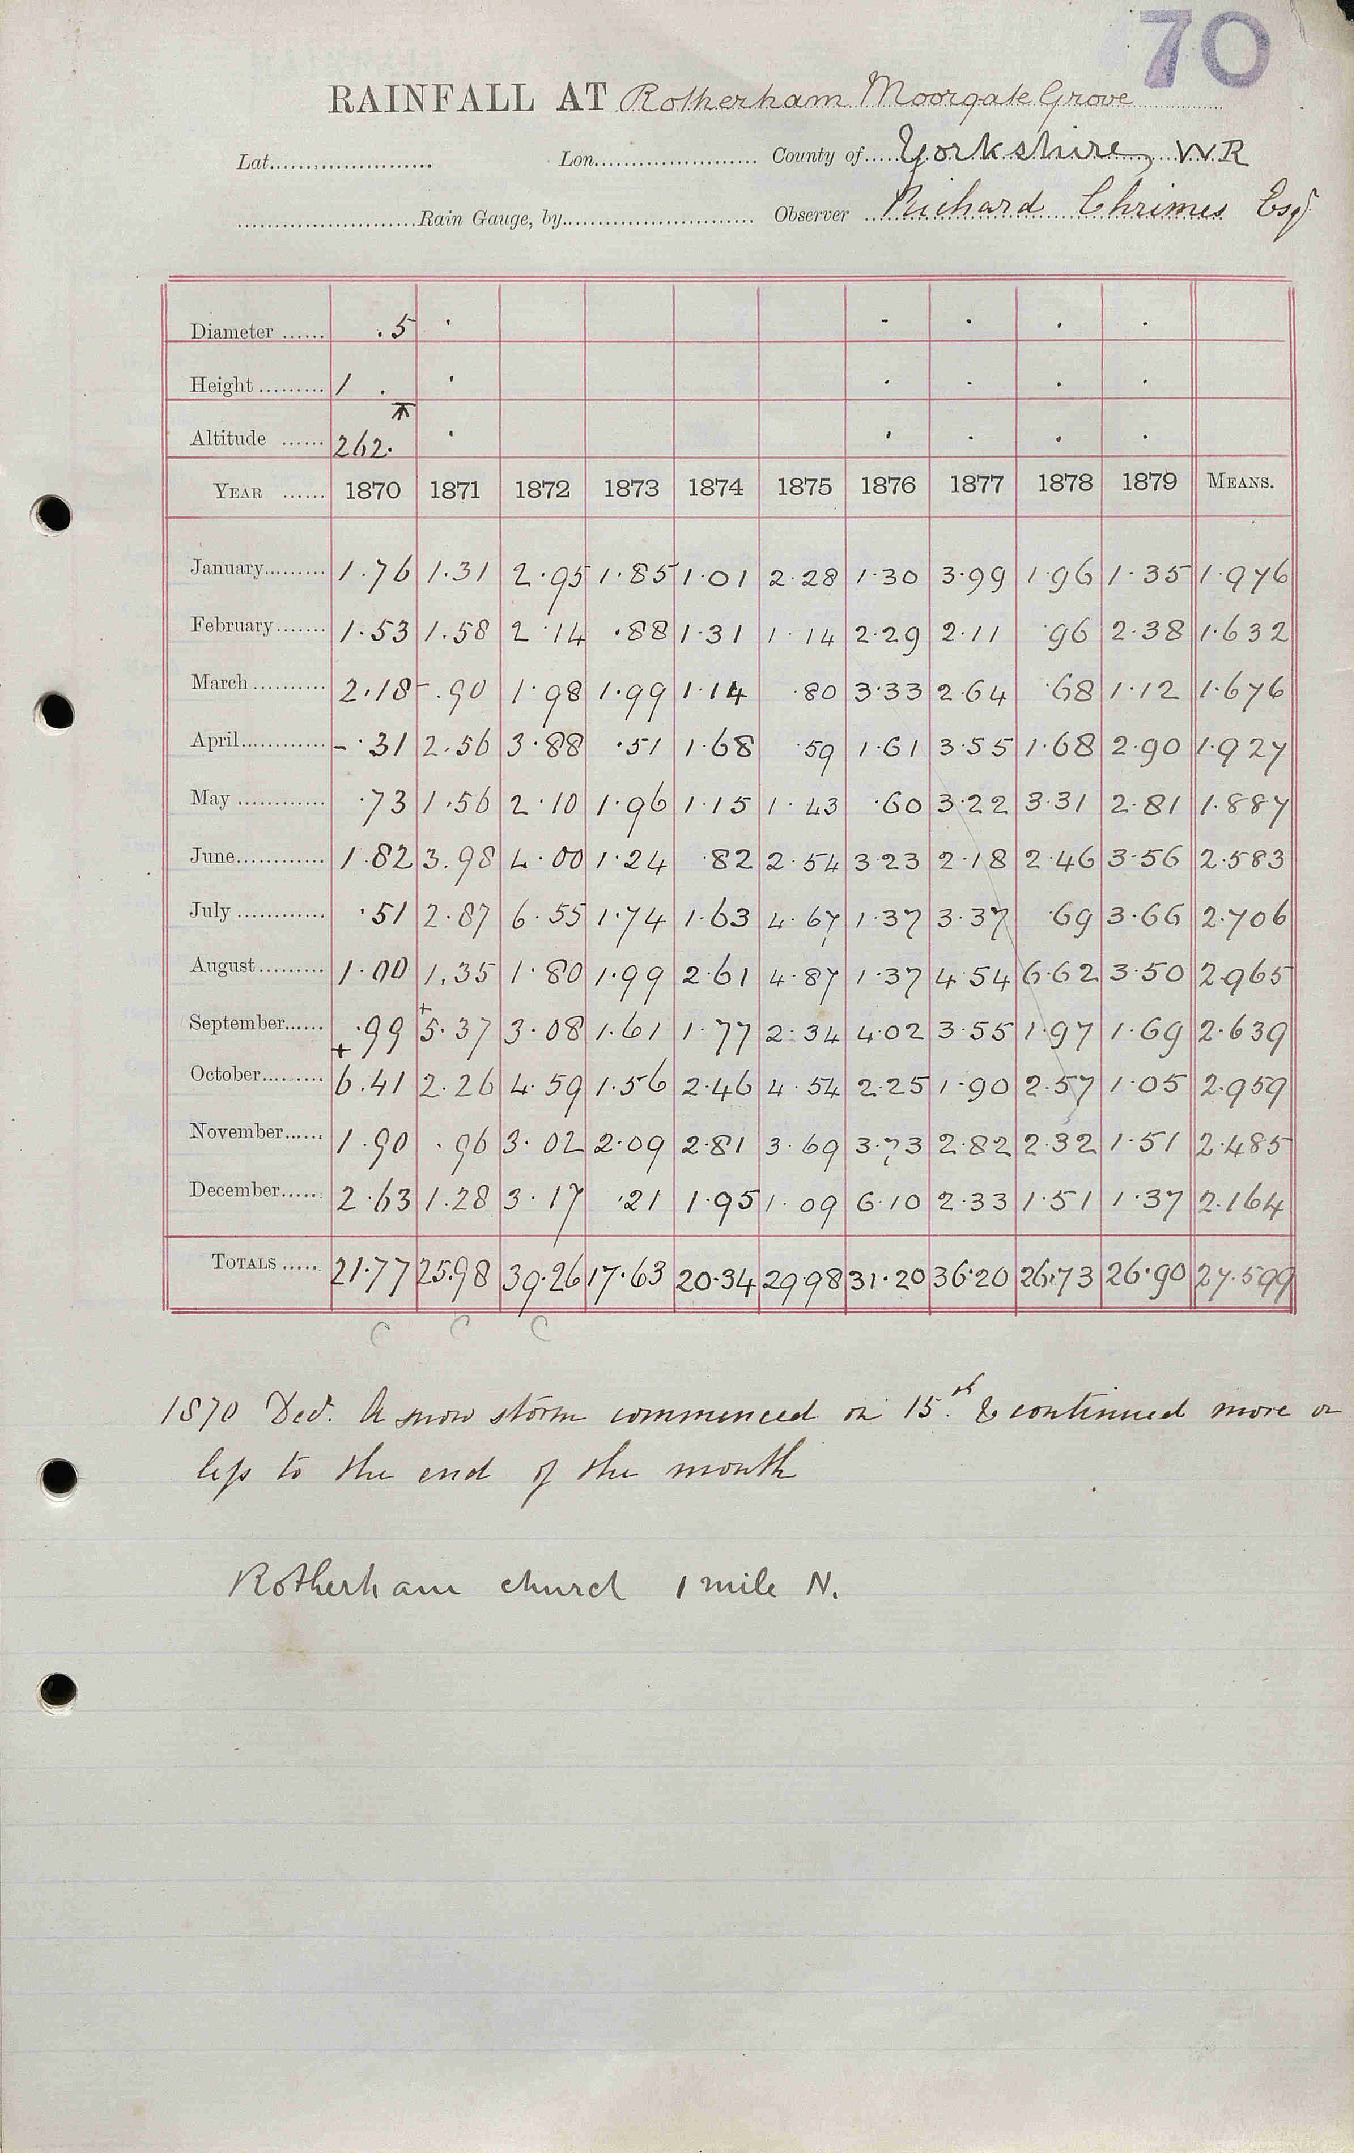 70
RAINFALL AT Rotherham Moorgate Grove
Lat...................... Lon...................... County of.... Yorkshire, WR
........................Rain Gauge, by.......................... Observer Richard Chrimes Esqr
Diameter ...... .5 . . . . .
Height ......... 1 . . . . . .
Altitude ...... 262. . . . . .
YEAR ...... 1870 1871 1872 1873 1874 1875 1876 1877 1878 1879 MEANS.
January......... 1.76 1.31 2.95 1.85 1.01 2.28 1.30 3.99 1.96 1.35 1.976
February....... 1.53 1.58 2.14 .88 1.31 1.14 2.29 2.11 .96 2.38 1.632
March.......... 2.18 .90 1.98 1.99 1.14 .80 3.33 2.64 .68 1.12 1.676
April............ - .31 2.56 3.88 .51 1.68 .59 1.61 3.55 1.68 2.90 1.927
May ............ .73 1.56 2.10 1.96 1.15 1.43 .60 3.22 3.31 2.81 1.887
June............ 1.82 3.98 4.00 1.24 .82 2.54 3.23 2.18 2.46 3.56 2.583
July ............ .51 2.87 6.55 1.74 1.63 4.67 1.37 3.37 .69 3.66 2.706
August......... 1.00 1.35 1.80 1.99 2.61 4.87 1.37 4.54 6.62 3.50 2.965
September...... .99 + 5.37 3.08 1.61 1.77 2.34 4.02 3.55 1.97 1.69 2.639
October......... + 6.41 2.26 4.59 1.56 2.46 4.54 2.25 1.90 2.57 1.05 2.959
November...... 1.90 .96 3.02 2.09 2.81 3.69 3.73 2.82 2.32 1.51 2.485
December...... 2.63 1.28 3.17 .21 1.95 1.09 6.10 2.33 1.51 1.37 2.164
TOTALS ..... 21.77 25.98 39.26 17.63 20.34 29.98 31.20 36.20 26.73 26.90 27.599
C C C
1870 Decr. A snow storm commenced on 15th & continued more or
less to the end of the month
Rotherham church 1 mile N.